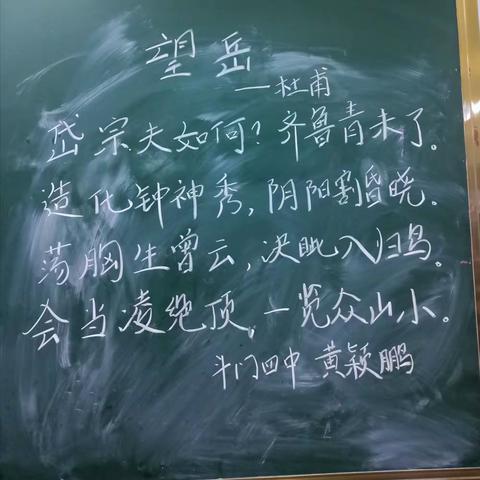 望岳
—杜甫
岱宗夫如何?齐鲁青未了。
造化钟神秀,阴阳割昏晓。
荡胸生曾云,决眦入归鸟。
会当凌绝顶,一览众山小。
斗门四中 黄颖鹏